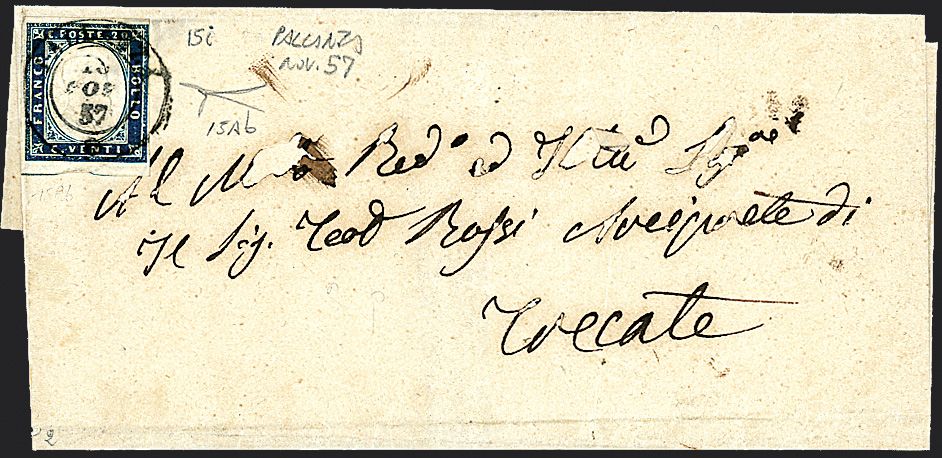 C. POSTE. 20
FRANCO
BOLLO
C. VENTI
57
15i
PALLANZA
NOV. 57
15Ab
15Ab
Al Mto Redo ed Illu Sigre
Il Sig. Teod Rossi Arciprete di
Trecate
2